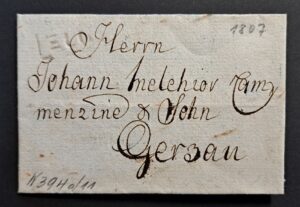 1807
Herrn
Johann Melchior Cam,
menzind & Sohn
Gersau
K394a/11